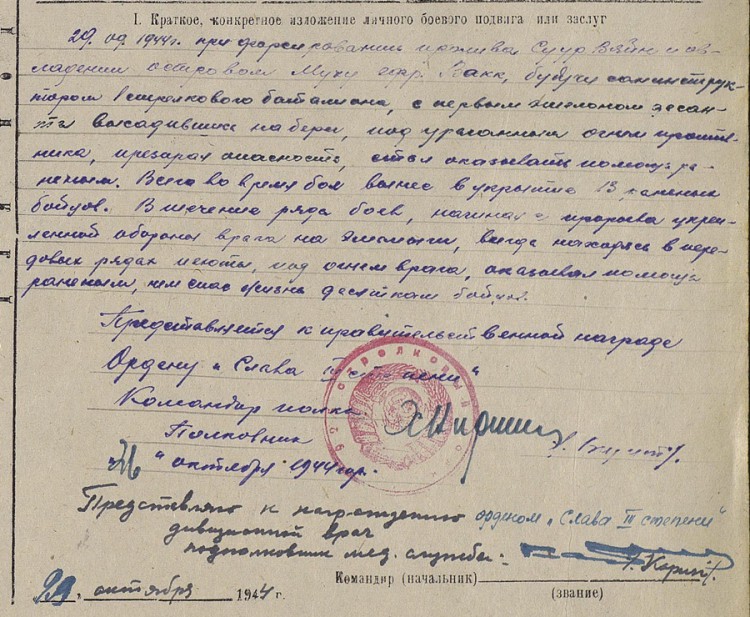 I. Краткое, конкретное изложение личного боевого подвига или заслуг
29.09.1944г. при форсировании пролива Суур Вяйн и ов-
ладении островом Муху ефр. Вакк, будучи санинструк-
тором стрелкового баталиона, с первым эшелоном десан-
та высадившись на берег, под ураганным огнем против-
ника, презирая опасность, стал оказывать помощь ра-
неным. Всего во время боя вынес в укрытие 13 раненых
бойцов. В течение ряда боев, начиная с прорыва укреп-
ленной обороны врага на Эмайыги, всегда находясь в пере-
довых рядах пехоты, под огнем врага, оказывал помощь
раненым, чем спас жизнь десяткам бойцов.
Представляется к правительственной награде
Ордену „Слава III степени"
Командир полка
Полковник
" октября 1944 г.
Представляю к награждению орденом „Слава III степени"
дивизионный врач
подполковник мед. службы:
Командир (начальник)
(звание)
29 октября 1944 г.